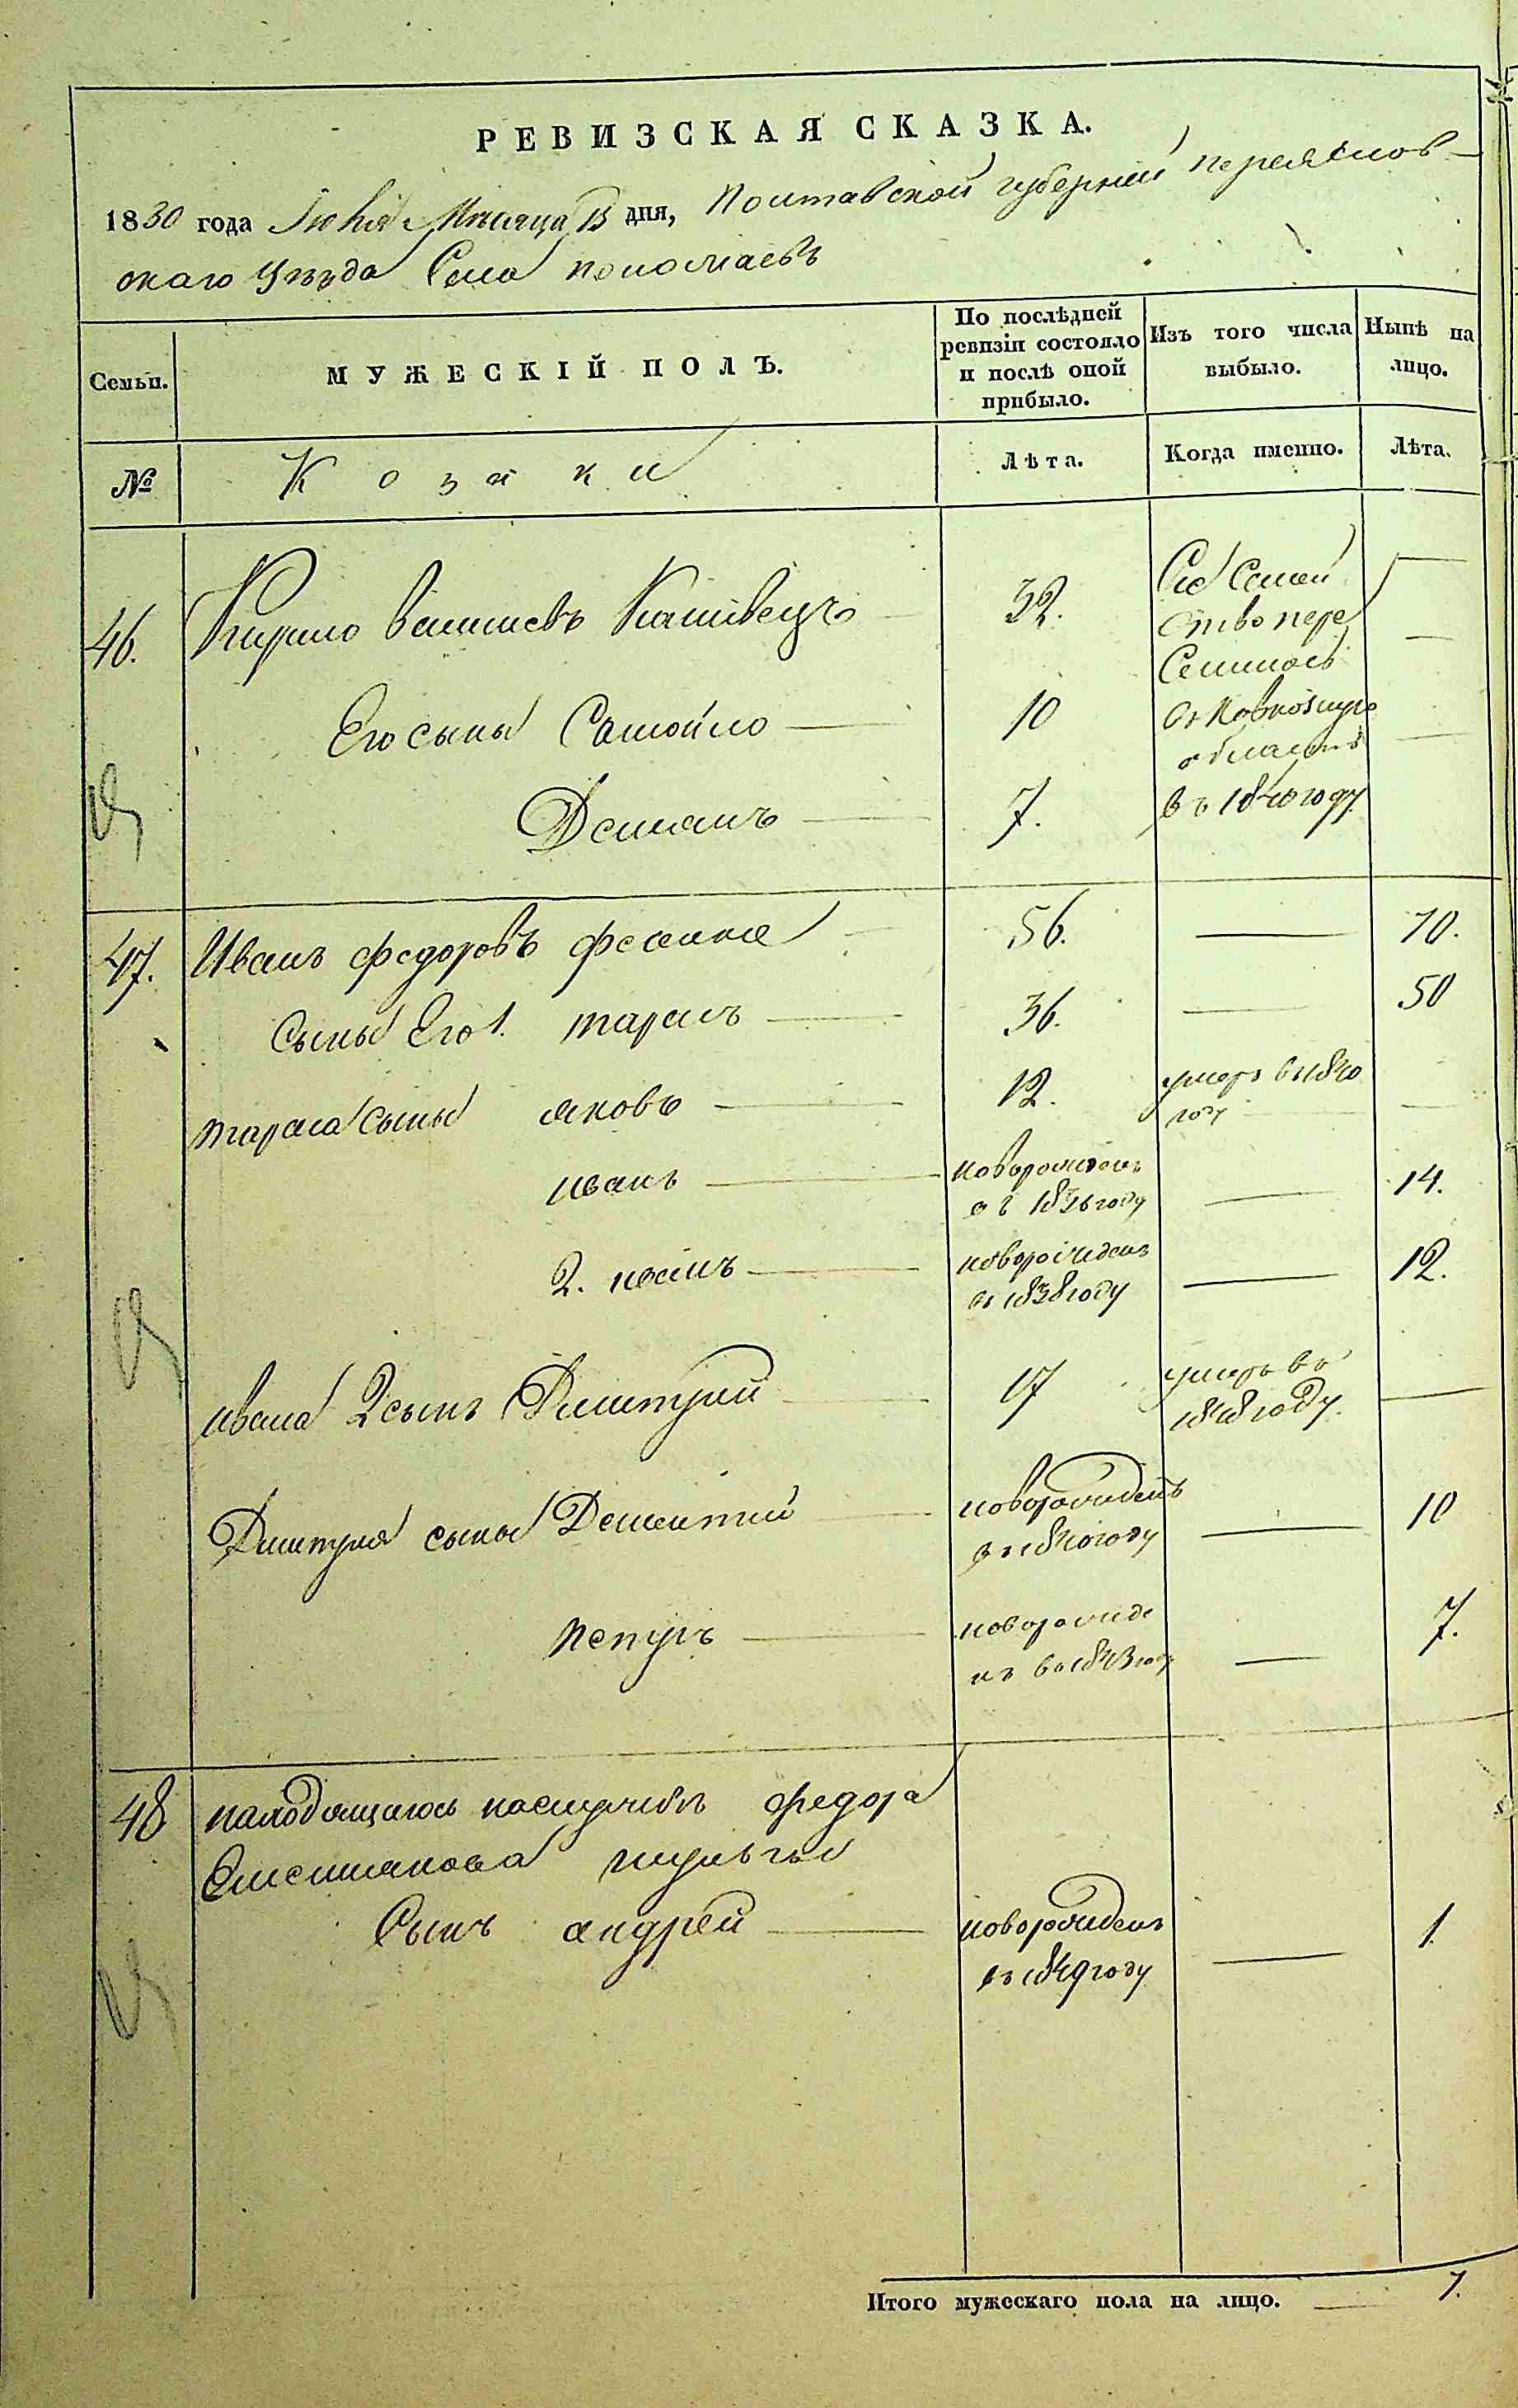 РЕВИЗСКАЯ СКАЗКА.
1830 года Июня Месяца 13 дня, Полтавской губернии переяслов-
скаго уезда Села
Семьи.
МУЖЕСКІЙ ПОЛЪ.
По послѣдней ревизіи состояло и послѣ оной прибыло.
Изъ того числа выбыло.
Нынѣ на лицо.
№
Козаки
Лѣта.
Когда именно.
Лѣта.
46. Кирило 32.
Его сыны Самойло 10
Демянъ 7.
Съ Семей
ство пере
Селилось
области
въ 1840 году
47. Иванъ федоровъ 56. 70.
Сынъ Его 1. тарасъ 36. 50
тараса сыны яковъ 12. умеръ в 1840
году
иванъ новорожденъ 14.
в 1836 году
2. иванъ новорожденъ 12.
в 1838 году
ивана 2 сынъ Дмитрий 17 умеръ въ
1848 году.
Дмитрия сыны Дементий новорожденъ 10
в 1840 году
петръ новорожде 7.
нъ в 1843 году
48 находящагося федора
Емельянова
Сынъ андрей новорожденъ 1.
в 1849 году
Итого мужескаго пола на лицо. 7.